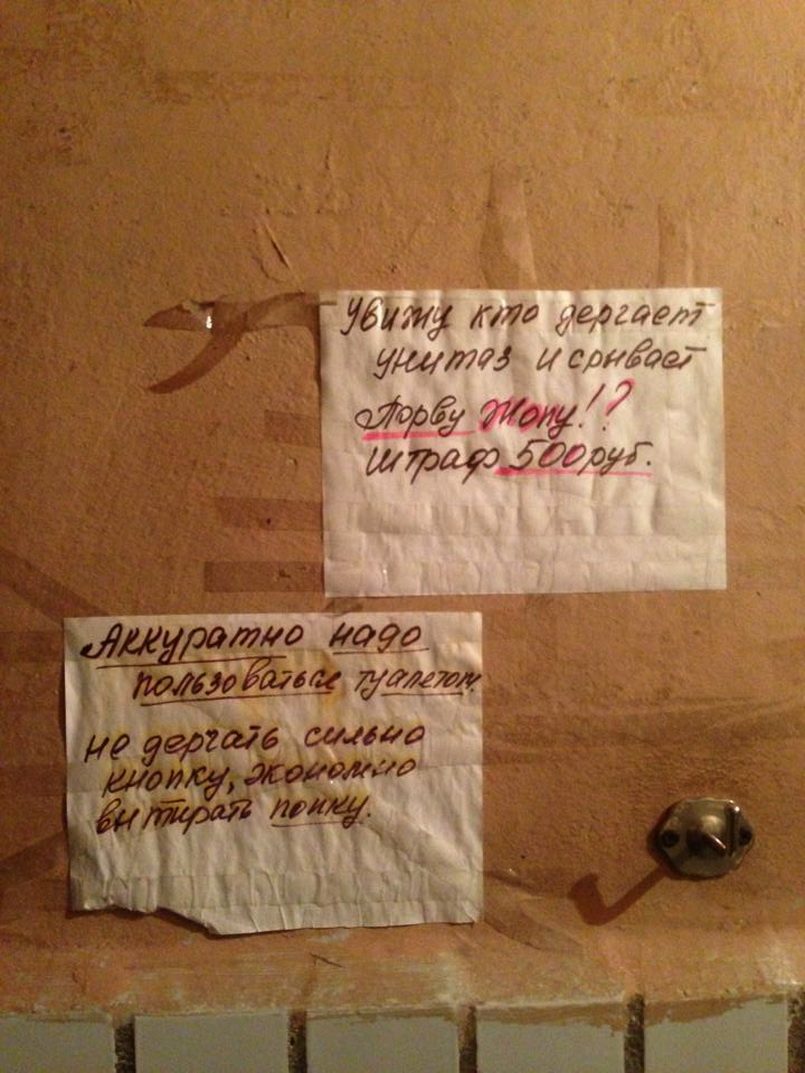 Увижу кто дергает
унитаз и срывает
Порву Жопу!?
Штраф 500руб.
Аккуратно надо
пользоваться туалетом.
не дергать сильно
кнопку, экономно
вытирать попку.